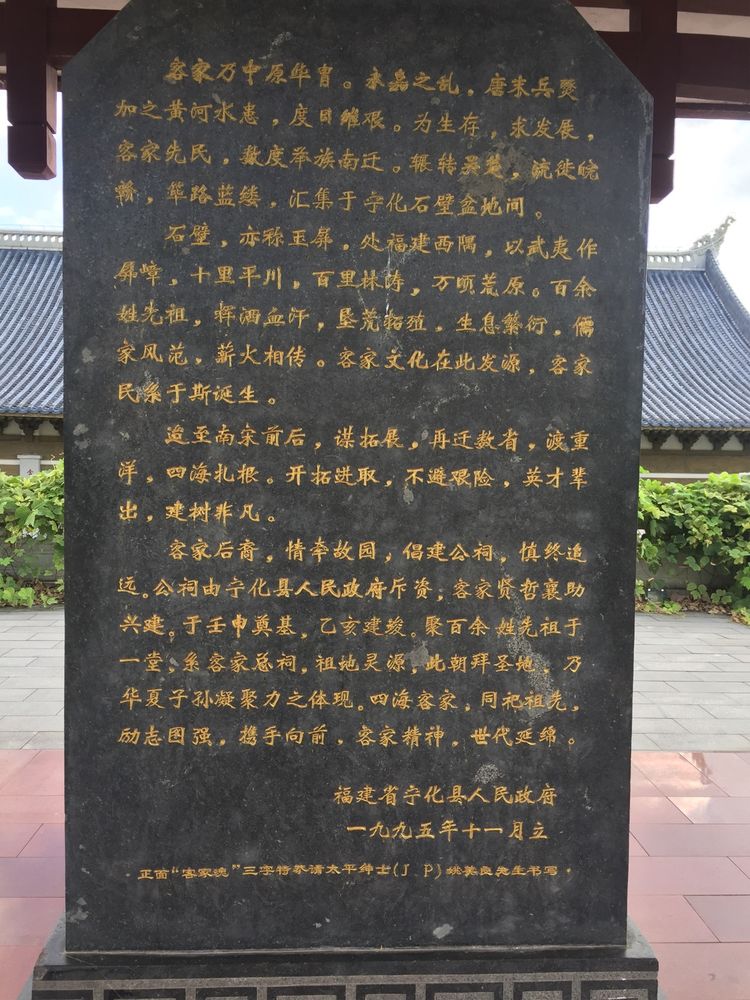 客家乃中原华胄。永嘉之乱，唐末兵燹
加之黄河水患，度日维艰。为生存，求发展，
客家先民，数度举族南迁。辗转吴楚，流徙皖
赣，筚路蓝缕，汇集于宁化石壁盆地间。
石壁，亦称玉屏。处福建西隅，以武夷作
屏嶂，十里平川，百里林涛，万顷荒原。百余
姓先祖，挥洒血汗，垦荒拓殖，生息繁衍，儒
家风范，薪火相传。客家文化在此发源，客家
民系于斯诞生。
迨至南宋前后，谋拓展，再迁数省，渡重
洋，四海扎根。开拓进取，不避艰险，英才辈
出，建树非凡。
客家后裔，情牵故园，倡建公祠，慎终追
远。公祠由宁化县人民政府斥资，客家贤哲襄助
兴建。于壬申奠基，乙亥建竣。聚百余姓先祖于
一堂，系客家总祠，祖地灵源，此朝拜圣地 乃
华夏子孙凝聚力之体现。四海客家，同祀祖先，
励志图强，携手向前，客家精神，世代延绵。
福建省宁化县人民政府
一九九五年十一月立
正面“客家魂”三字特恭请太平绅士(J P)姚美良先生书写